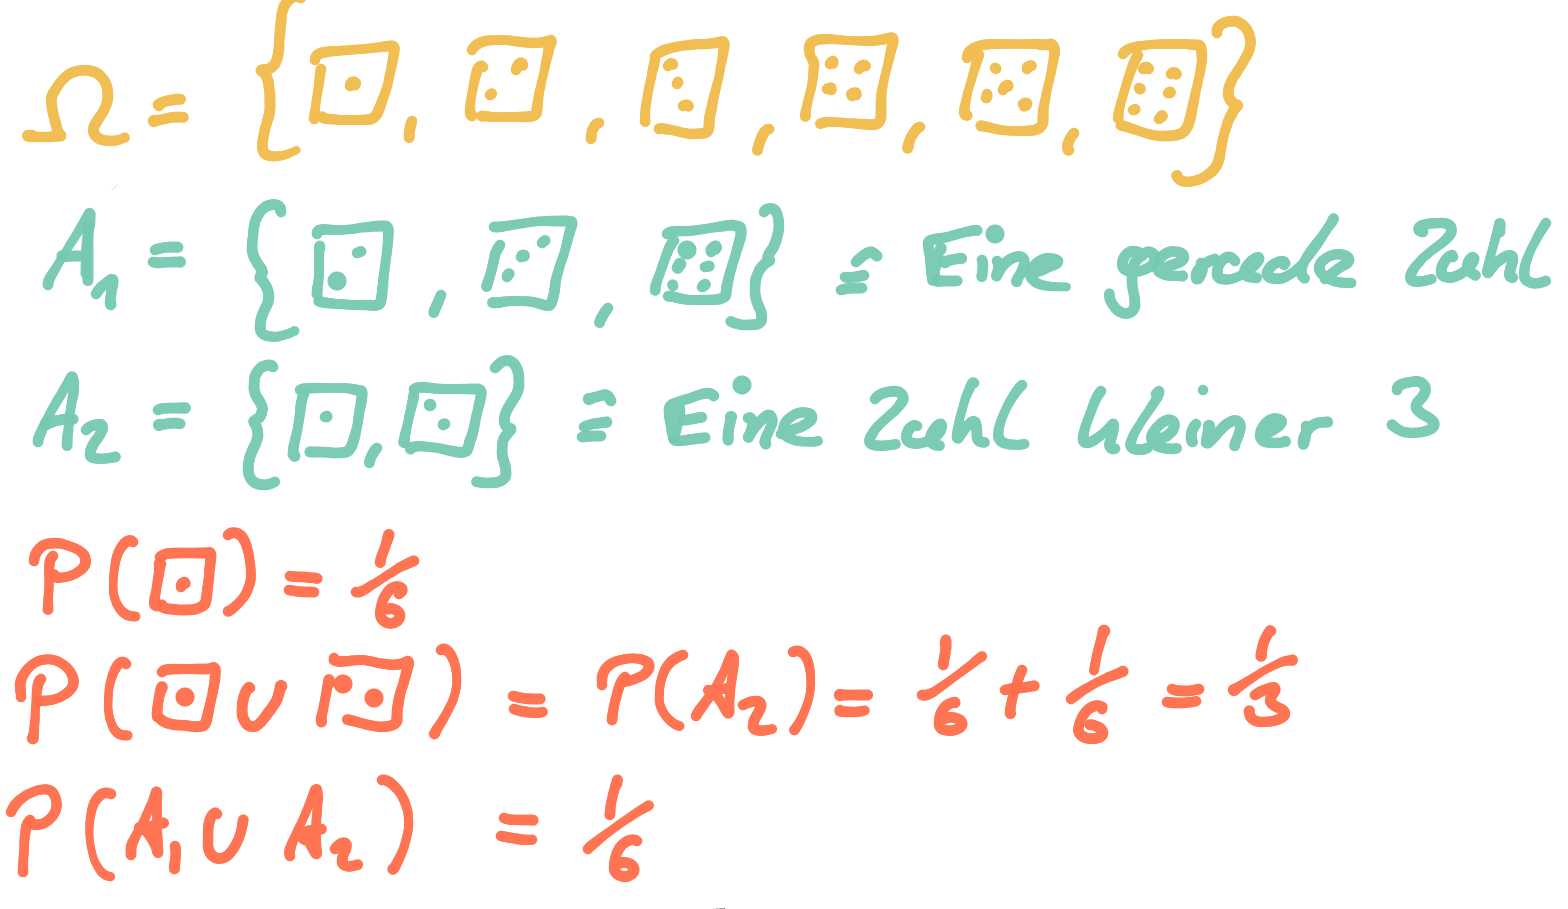 Ω = {⚀, ⚁, ⚂, ⚃, ⚄, ⚅}
A₁ = {⚁, ⚂, ⚅} ≙ Eine gerade Zahl
A₂ = {⚀, ⚁} ≙ Eine Zahl kleiner 3
P(⚀) = 1/6
P(⚀ ∪ ⚁) = P(A₂) = 1/6 + 1/6 = 1/3
P(A₁ ∪ A₂) = 1/6